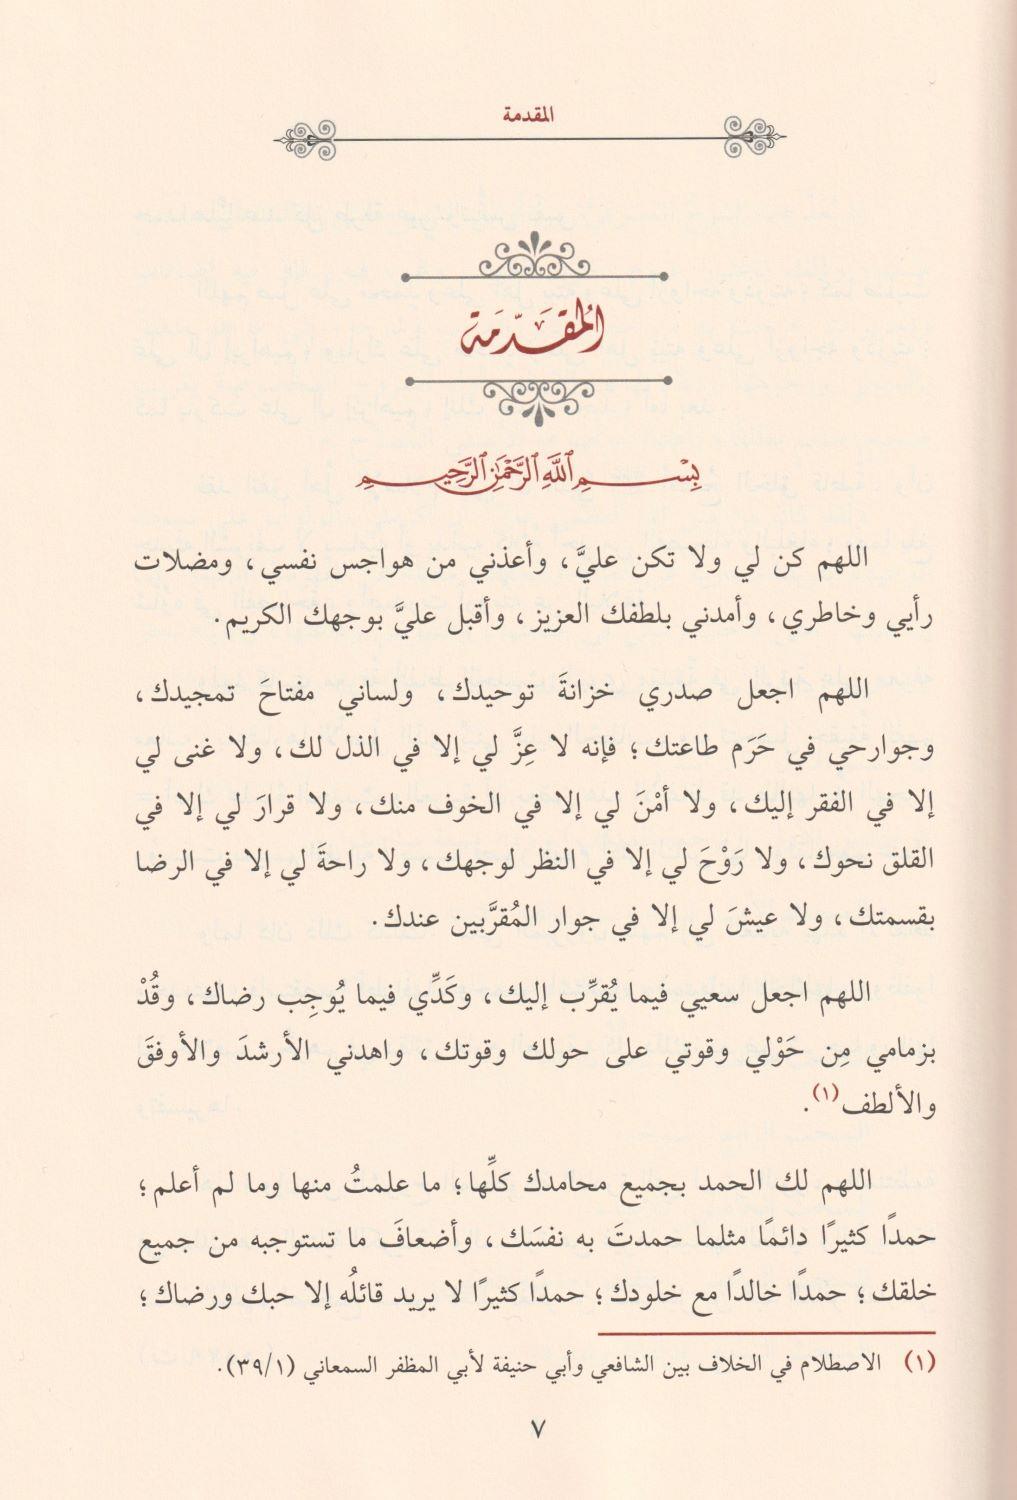 المقدمة
المُقَدِّمَة
بِسْمِ اللَّهِ الرَّحْمَٰنِ الرَّحِيمِ
اللهم كن لي ولا تكن عليَّ، وأعذني من هواجس نفسي، ومضلات
رأيي وخاطري، وأمدني بلطفك العزيز، وأقبل عليَّ بوجهك الكريم.
اللهم اجعل صدري خزانةَ توحيدك، ولساني مفتاحَ تمجيدك،
وجوارحي في حَرَم طاعتك؛ فإنه لا عِزَّ لي إلا في الذل لك، ولا غنى لي
إلا في الفقر إليك، ولا أمْنَ لي إلا في الخوف منك، ولا قرارَ لي إلا في
القلق نحوك، ولا رَوْحَ لي إلا في النظر لوجهك، ولا راحةَ لي إلا في الرضا
بقسمتك، ولا عيشَ لي إلا في جوار المُقرَّبين عندك.
اللهم اجعل سعيي فيما يُقرِّب إليك، وكَدِّي فيما يُوجِب رضاك، وقُدْ
بزمامي مِن حَوْلي وقوتي على حولك وقوتك، واهدني الأرشدَ والأوفقَ
والألطف(١).
اللهم لك الحمد بجميع محامدك كلِّها؛ ما علمتُ منها وما لم أعلم؛
حمدًا كثيرًا دائمًا مثلما حمدتَ به نفسَك، وأضعافَ ما تستوجبه من جميع
خلقك؛ حمدًا خالدًا مع خلودك؛ حمدًا كثيرًا لا يريد قائلُه إلا حبك ورضاك؛
(١) الاصطلام في الخلاف بين الشافعي وأبي حنيفة لأبي المظفر السمعاني (٣٩/١).
٧